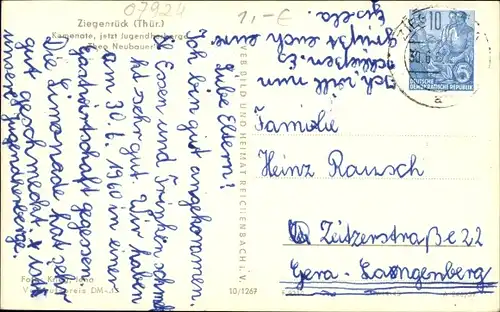 07924
1,-€
Ziegenrück (Thür.)
Kemenate, jetzt Jugendherberge
"Theo Neubauer"
Liebe Eltern!
Ich bin gut angkommen.
Essen und Trinken schmeckt
sehr gut. Wir haben
am 30. 6. 1960 in einer
Gastwirtschaft gegessen.
Die Limonade hat sehr
gut geschmeckt. x in
unserer Jugendherberge.
Ich will nun
schließen. Es
grüßt euch eure
Gisela.
VEB BILD UND HEIMAT REICHENBACH i. V.
10
DEUTSCHE
DEMOKRATISCHE REPUBLIK
30.6.
a
Familie
Heinz Rausch
Zeitzerstraße 22
Gera-Langenberg
Jena
DM
10/1267